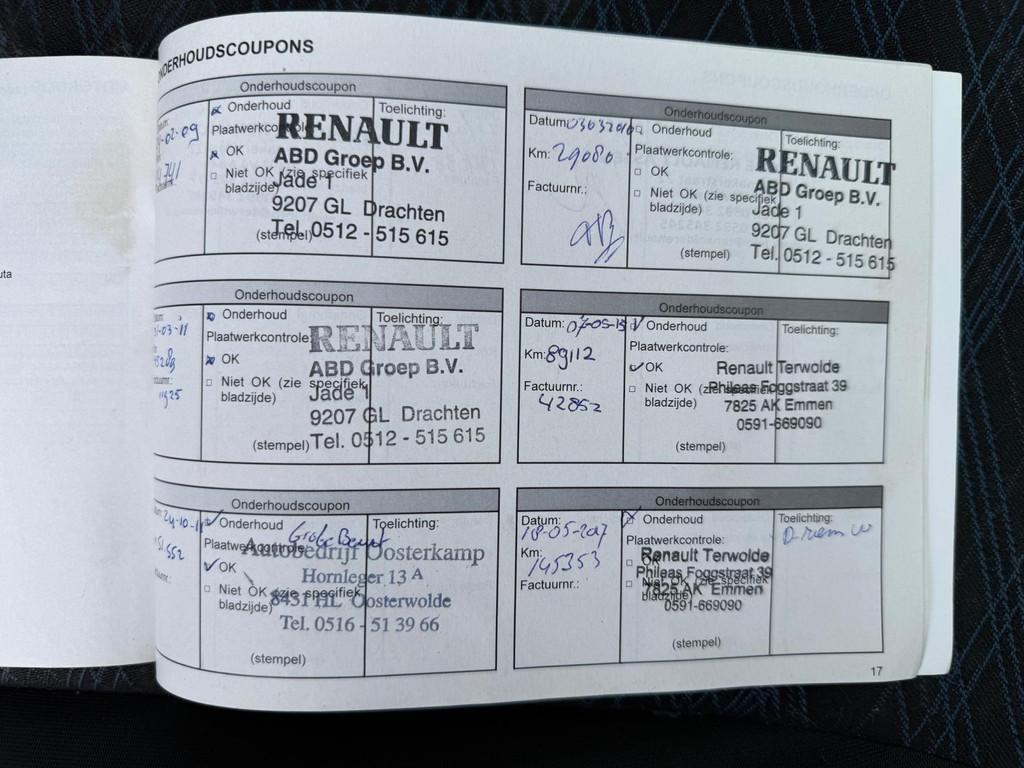 ONDERHOUDSCOUPONS
uta
Onderhoudscoupon
-02-09
Onderhoud
Plaatwerkcontrole
OK
Niet OK (zie specifiek
bladzijde)
(stempel)
Toelichting:
RENAULT
ABD Groep B.V.
Jade 1
9207 GL Drachten
Tel. 0512 - 515 615
Onderhoudscoupon
Datum:
Km: 29080
Factuurnr.:
Onderhoud
Plaatwerkcontrole:
OK
Niet OK (zie specifiek
bladzijde)
(stempel)
Toelichting:
RENAULT
ABD Groep B.V.
Jade 1
9207 GL Drachten
Tel. 0512 - 515 615
Onderhoudscoupon
-03-11
Onderhoud
Plaatwerkcontrole:
OK
Niet OK (zie specifiek
bladzijde)
(stempel)
Toelichting:
RENAULT
ABD Groep B.V.
Jade 1
9207 GL Drachten
Tel. 0512 - 515 615
Onderhoudscoupon
Datum: 07-05-15
Km: 89112
Factuurnr.:
42852
Onderhoud
Plaatwerkcontrole:
OK
Niet OK (zie specifiek
bladzijde)
(stempel)
Toelichting:
Renault Terwolde
Phileas Foggstraat 39
7825 AK Emmen
0591-669090
Onderhoudscoupon
24-10-11
Onderhoud
Plaatwerkcontrole
OK
Niet OK (zie specifiek
bladzijde)
(stempel)
Toelichting:
Grote Beurt
Autobedrijf Oosterkamp
Hornleger 13 A
8431 HL Oosterwolde
Tel. 0516 - 51 39 66
Onderhoudscoupon
Datum:
18-05-2017
Km:
145353
Factuurnr.:
Onderhoud
Plaatwerkcontrole:
OK
Niet OK (zie specifiek
bladzijde)
(stempel)
Toelichting:
Renault Terwolde
Phileas Foggstraat 39
7825 AK Emmen
0591-669090
17